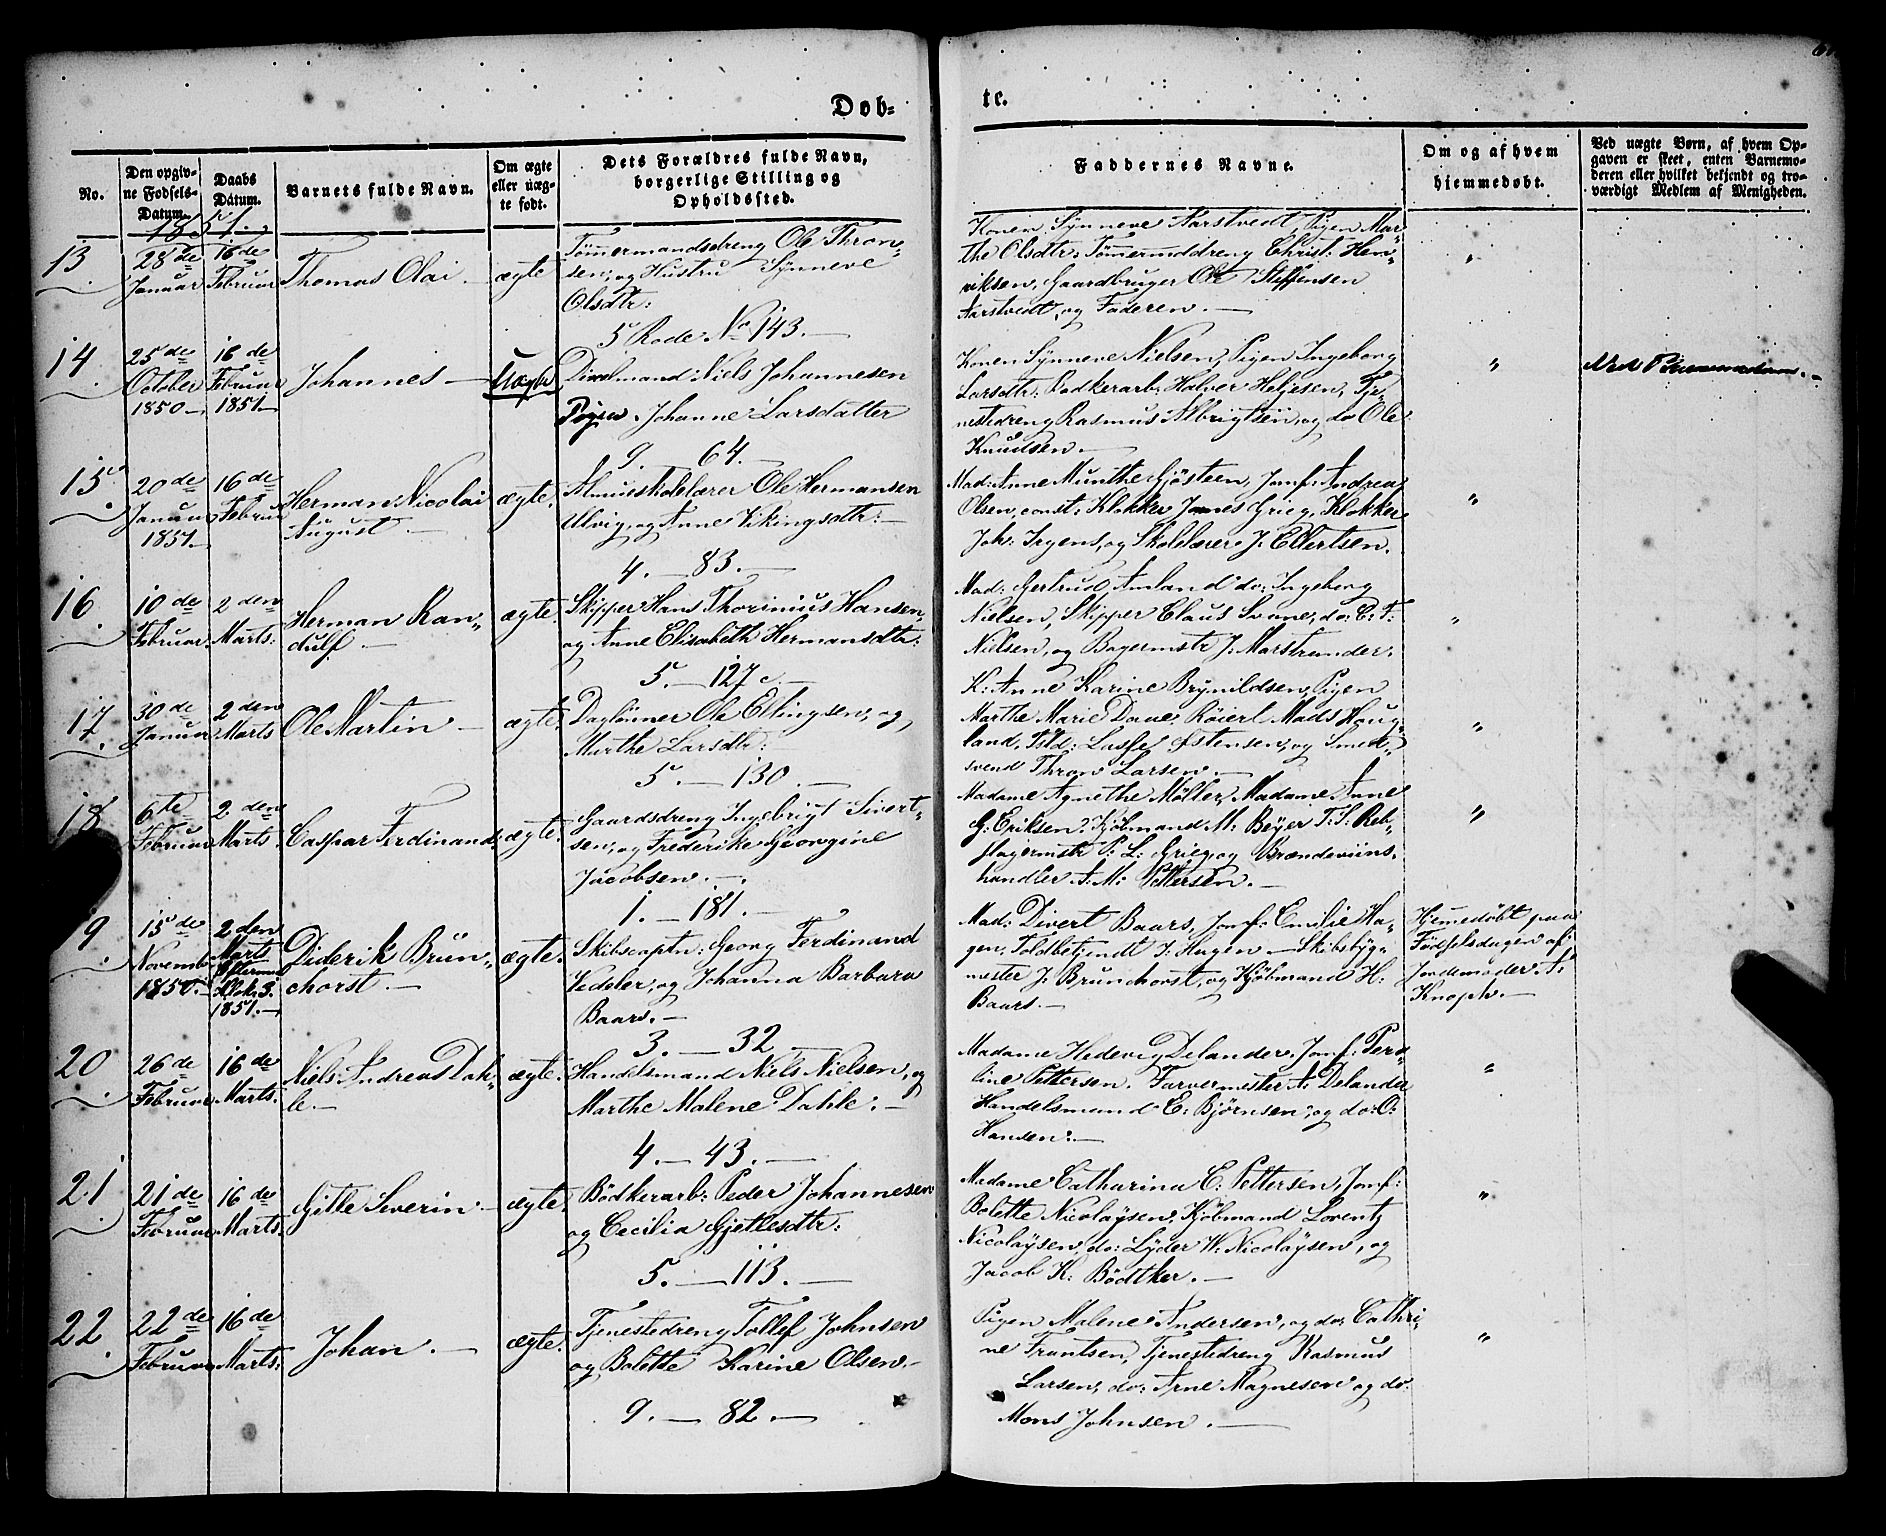 Døb-
te.
No.
Den opgiv-
ne Fødsels-
Datum.
Daabs
Datum.
Barnets fulde Navn.
Om ægte
eller uæg-
te født.
Dets Forældres fulde Navn,
borgerlige Stilling og
Opholdssted.
Faddernes Navne.
Om og af hvem
hjemmedøbt.
Ved uægte Børn, af hvem Op-
gaven er skeet, enten Barnemo-
deren eller hvilket bekjendt og tro-
værdigt Medlem af Menigheden.
1851.
13
28de
Januar
16de
Februar
Thomas Olai.
ægte
Tømmermandsdreng Ole Thron-
sen, og Hustru Synneve
Olsdtr:
5 Rode No 143.
Konen Synneve Aarstvedt, Pigen Mar-
the Olsdtr: Tømermddreng Christ: Hen-
riksen, Gaardbruger Ole Steffensen
Aarstvedt, og Faderen.
"
14
25de
October
1850
16de
Februar
1851
Johannes
Uægte
Niels Johannesen
Pigen Johanne Larsdatter
9. 64.
Konen Synneve Nielsen, Pigen Ingeborg
Larsdtr: Bødkerarb: Halver Heljesen, Tje-
nestedreng Rasmus Albrigtsen, og do Ole
Knudsen.
"
15
20de
Januar
1851
16de
Februar
Herman Nicolai
August
ægte.
Almueskolelærer Ole Hermansen
Ulvig, og Anne Vikingsdtr:
4. 83.
Mad: Anne Munthe Gjösteen, Jomf: Andrea
Olsen, const: Klokker Joones Grieg, Klokker
Joh: Irgens, og Skolelærer J. Ellertsen.
"
16.
10de
Februar
2den
Marts:
Herman Ran-
dulf
ægte.
Skipper Hans Thorinius Hansen,
og Anne Elisabeth Hermansdtr:
5. 127 c.
Mad: Gertrud Amland do: Ingeborg
Nielsen, Skipper Claus Svane, do: C: F:
Nielsen, og Bagermstr J. Marstrander.
"
17.
30de
Januar
2den
Marts
Ole Martin
ægte.
Daglønner Ole Ellingsen, og
Marthe Larsdtr:
5. 130.
K: Anne Karine Brynildsen, Pigen
Marthe Marie Daue, Röierl Mads Houg-
land, Lasse Østensen, og Smed-
svend Thron Larsen.
"
18
6te
Februar
2den
Marts.
Caspar Ferdinand
ægte.
Gaardsdreng Ingebrigt Sivert-
sen, og Frederike Georgine
Jacobsen.
1. 181.
Madame Agnethe Møller, Madame Anne
G: Eriksen, Kjøbmand M: Beyer Reb-
slagermstr P: L: Grieg, og Brændeviins-
handler A: M: Pettersen.
"
19
15de
Novemb
1850.
2den
Marts
Efterm
Klok: 3.
1851.
Diderik Brun-
chorst.
ægte.
Skibscaptn: Georg Ferdinand
Vedeler, og Johanna Barbara
Baars.
3. 32
Mad: Divert Baars, Jomf: Emilie Ha-
gen, Toldbetjendt J: Hagen Skibsbyg-
mester J. Brunchorst, og Kjøbmand H:
Baars.
Hjemmedøbt paa
Fødselsdagen af
Jordemoder A:
Knoph.
20
26de
Februar
16de
Marts.
Niels Andreas Dah-
le.
ægte.
Handelsmand Niels Nielsen, og
Marthe Malene Dahle.
4. 43.
Madame Hedevig Delander, Jomf: Pero-
line Pettersen. Farvermester A: Delander
Handelsmand E: Bjørnsen, og do: O:
Hansen.
"
21
21de
Februar
16de
Marts.
Gitle Severin
ægte.
Bødkerarb: Peder Johannesen
og Cecilia Gjetlesdtr:
5. 113.
Madame Catharina C. Pettersen, Jomf:
Bolette Nicolaysen, Kjøbmand Lorentz
Nicolaysen, do: Lyder W. Nicolaysen, og
Jacob K: Bødtker.
"
22.
22de
Februar
16de
Marts:
Johan.
ægte.
Tjenestedreng Tollef Johnsen
og Bolette Karine Olsen.
9. 82.
Pigen Malene Andersen, og do: Cathri-
ne Frantsen, Tjenestedreng Rasmus
Larsen, do: Arne Magnesen og do:
Mons Johnsen.
"